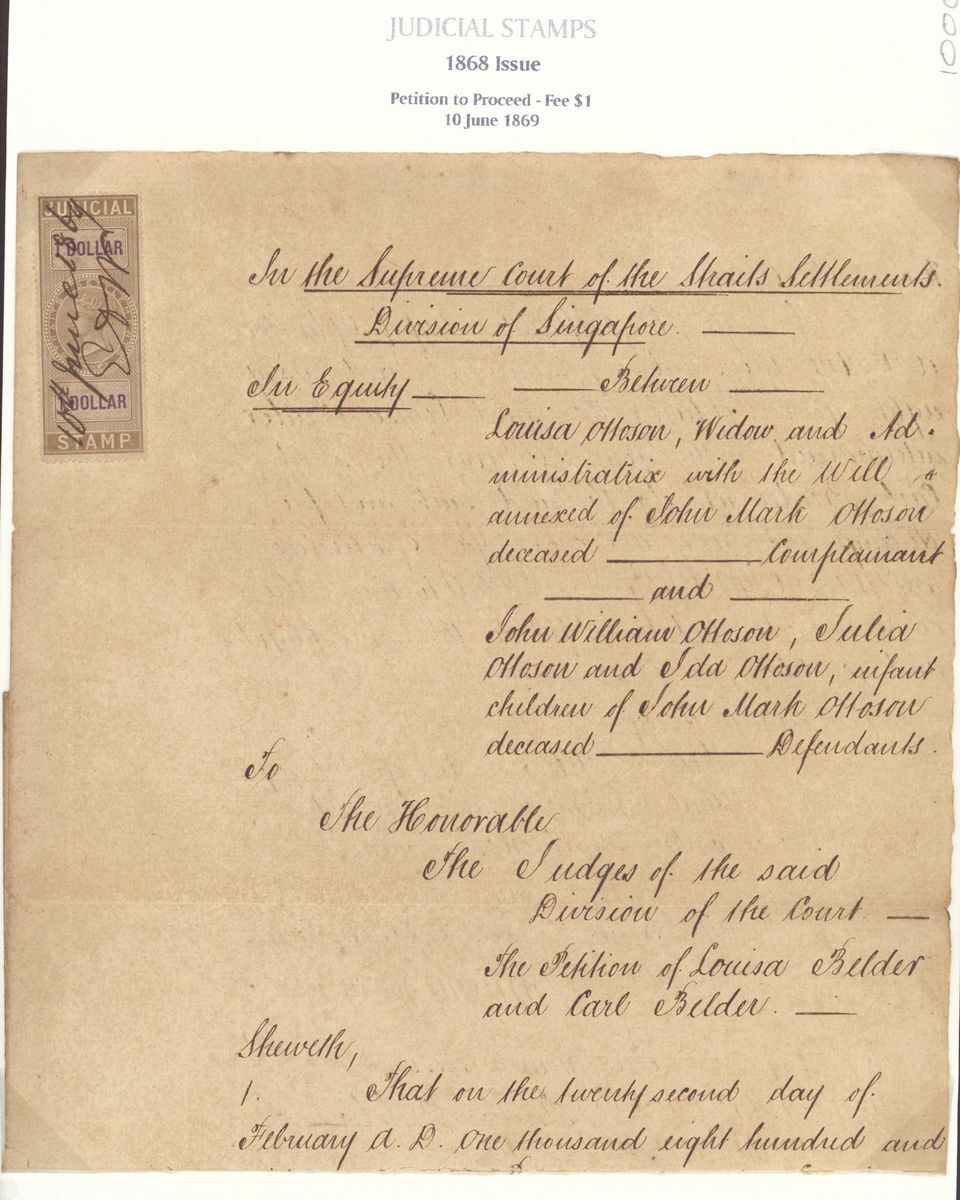 JUDICIAL STAMPS
1868 Issue
Petition to Proceed - Fee $1
10 June 1869
1000
JUDICIAL
1 DOLLAR
DOLLAR
STAMP
10th June 1869
In the Supreme Court of the Straits Settlements.
Division of Singapore.
In Equity
Between
Louisa Ottoson, Widow and Ad-
ministratrix with the Will
annexed of John Mark Ottoson
deceased Complainant
and
John William Ottoson, Julia
Ottoson and Ida Ottoson, infant
children of John Mark Ottoson
deceased Defendants.
To
The Honorable
The Judges of the said
Division of the Court
The Petition of Louisa Belder
and Carl Belder.
Sheweth,
1. That on the twenty second day of
February A. D. One thousand eight hundred and